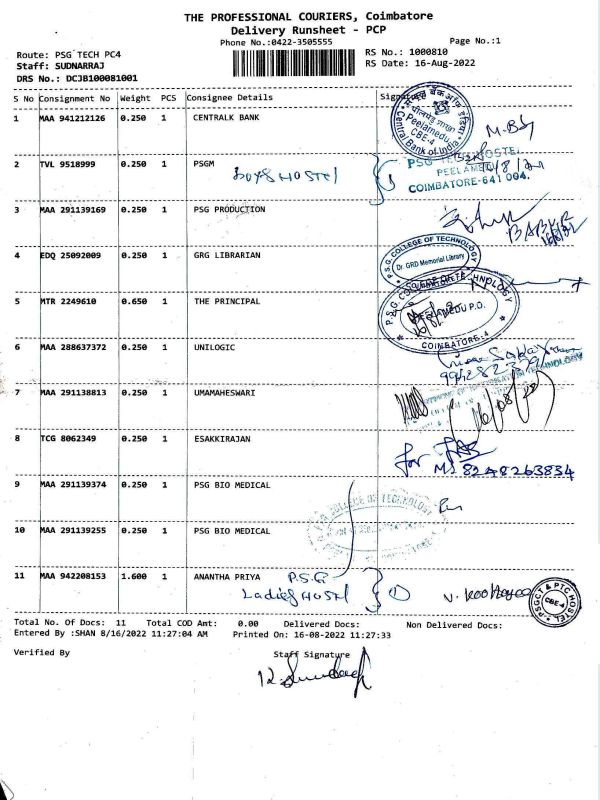 THE PROFESSIONAL COURIERS, Coimbatore
Delivery Runsheet - PCP
Phone No.:0422-3505555
Page No.:1
Route: PSG TECH PC4
RS No.: 1000810
Staff: SUDNARRAJ
RS Date: 16-Aug-2022
DRS No.: DCJB100081001
S No Consignment No Weight PCS Consignee Details Signature
1 MAA 941212126 0.250 1 CENTRALK BANK
सेन्ट्रल बैंक ऑफ इंडिया
Peelamedu
CBE-4
Central Bank of India
2 TVL 9518999 0.250 1 PSGM
BOYS HOSTEL
PEELAMEDU
COIMBATORE-641 004.
3 MAA 291139169 0.250 1 PSG PRODUCTION
4 EDQ 25092009 0.250 1 GRG LIBRARIAN
P.S.G. COLLEGE OF TECHNOLOGY
Dr. GRD Memorial Library
5 MTR 2249610 0.650 1 THE PRINCIPAL
P.S.G. COLLEGE OF TECHNOLOGY
PEELAMEDU P.O.
COIMBATORE-4
6 MAA 288637372 0.250 1 UNILOGIC
7 MAA 291138813 0.250 1 UMAMAHESWARI
16/08/22
8 TCG 8062349 0.250 1 ESAKKIRAJAN
for
8248263834
9 MAA 291139374 0.250 1 PSG BIO MEDICAL
P.S.G. COLLEGE OF TECHNOLOGY
10 MAA 291139255 0.250 1 PSG BIO MEDICAL
11 MAA 942208153 1.600 1 ANANTHA PRIYA
P.S.G
Ladies HOSTEL
PSGCT & PTC HOSTEL
CBE-4
Total No. Of Docs: 11 Total COD Amt: 0.00 Delivered Docs: Non Delivered Docs:
Entered By :SHAN 8/16/2022 11:27:04 AM Printed On: 16-08-2022 11:27:33
Verified By
Staff Signature